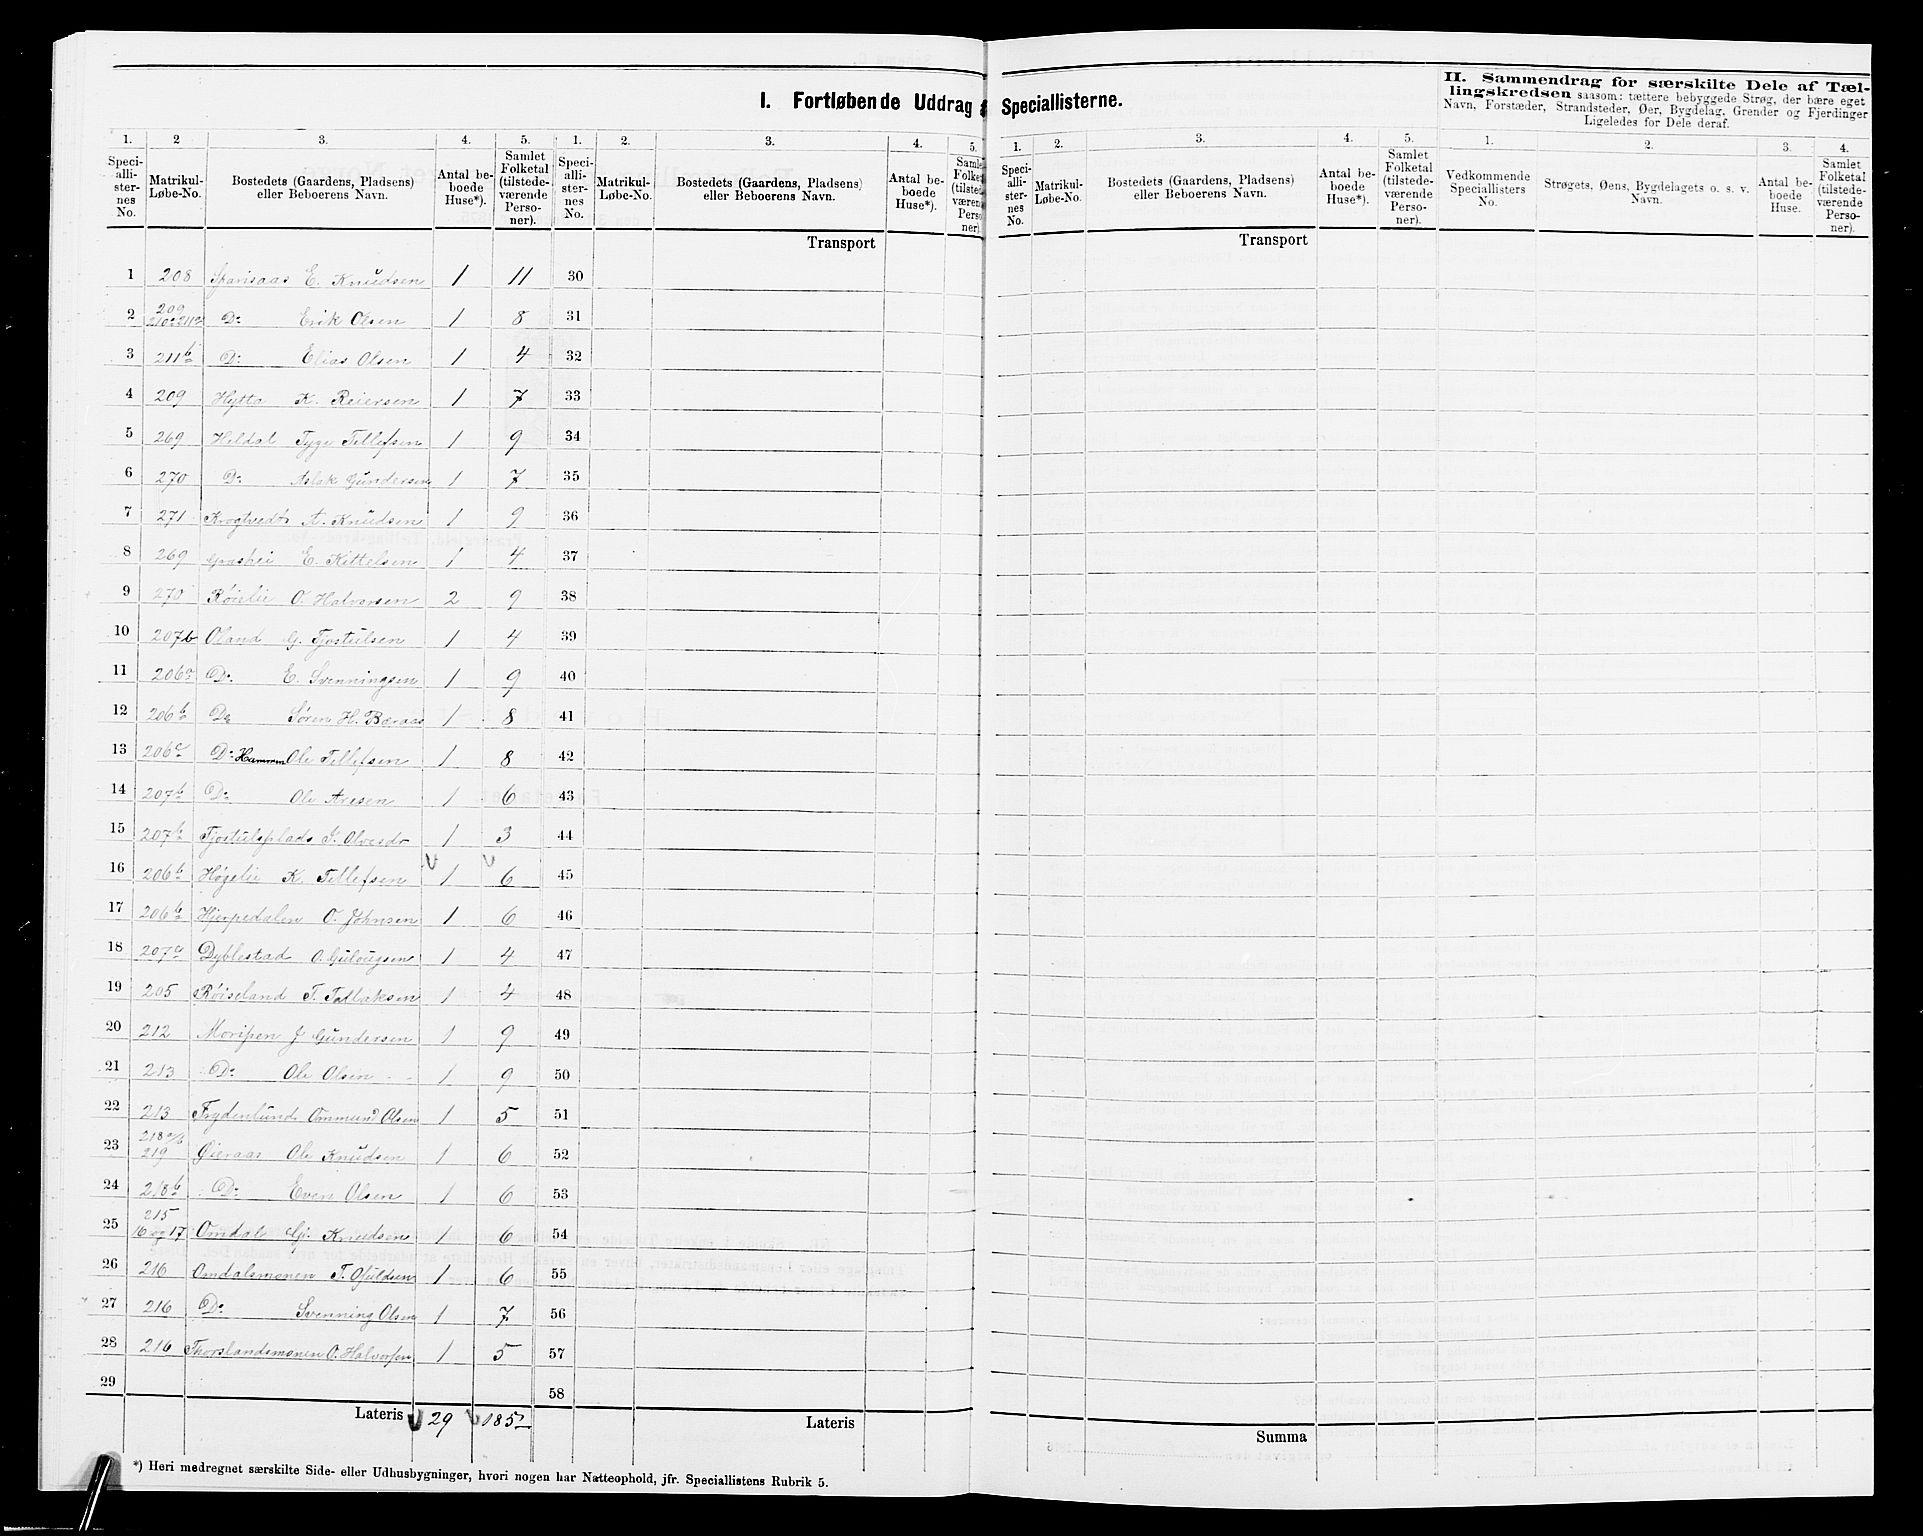 I. Fortløbende Uddrag Speciallisterne.
II. Sammendrag for særskilte Dele af Tæl-
lingskredsen saasom: tættere bebyggede Strøg, der bære eget
Navn, Forstæder, Strandsteder, Øer, Bygdelag, Grender og Fjerdinger
Ligeledes for Dele deraf.
1. 2 3. 4. 5. 1. 2. 3. 4. 5. 1. 2. 3. 4. 5. 1. 2. 3. 4.
Speci-alli-ster-nes No. Matrikul-Løbe-No. Bostedets (Gaardens, Pladsens) eller Beboerens Navn. Antal be-boede Huse*). Samlet Folketal (tilstede-værende Perso-ner).
Speci-alli-ster-nes No. Matrikul-Løbe-No. Bostedets (Gaardens, Pladsens) eller Beboerens Navn. Antal be-boede Huse*).
Speci-alli-ster-nes No. Matrikul-Løbe-No. Bostedets (Gaardens, Pladsens) eller Beboerens Navn. Antal be-boede Huse*). Samlet Folketal (tilstede-værende Perso-ner).
Vedkommende Speciallisters No. Strøgets, Øens, Bygdelagets o. s. v. Navn. Antal be-boede Huse. Samlet Folketal (tilstede-værende Perso-ner).
Transport Transport
1 208 E. Knudsen 1 11 30
2 209 210 211a Do Erik Olsen 1 8 31
3 211b Do Elias Olsen 1 4 32
4 209 Hytta K. Reiersen 1 7 33
5 269 Heldal Tyge Tellefsen 1 9 34
6 270 Do Aslak Gundersen 1 7 35
7 271 Krogtvedt A. Knudsen 1 9 36
8 269 E. Kittelsen 1 4 37
9 270 Røislie O. Halvorsen 2 9 38
10 207b Oland G. Tjostulsen 1 4 39
11 206a Do E. Svenningsen 1 9 40
12 206b Do Søren H. Beraas 1 8 41
13 206c Do Hammen Ole Tellefsen 1 8 42
14 207b Do Ole Aresen 1 6 43
15 207b Tjostulsplads 1 3 44
16 206b Høgelie K. Tellefsen 1 6 45
17 206b Hjerpedalen O. Johnsen 1 6 46
18 207a Dyblestad O. 1 4 47
19 205 Røiseland T. Tallaksen 1 4 48
20 212 J Gundersen 1 9 49
21 213 Do Ole Olsen 1 9 50
22 213 Frydenlund Ommund Olsen 1 5 51
23 218a/b 219 Øieraas Ole Knudsen 1 6 52
24 218b Do Even Olsen 1 6 53
25 215 16 og 17 Omdal Gj. Knudsen 1 6 54
26 216 Omdalsmonen T. 1 6 55
27 216 Do Svenning Olsen 1 7 56
28 216 Thorslandsmonen O. Halvorsen 1 5 57
29 58
Lateris 29 185 Lateris Summa
*) Heri medregnet særskilte Side- eller Udhusbygninger, hvori nogen har Natteophold, jfr. Speciallistens Rubrik 5.